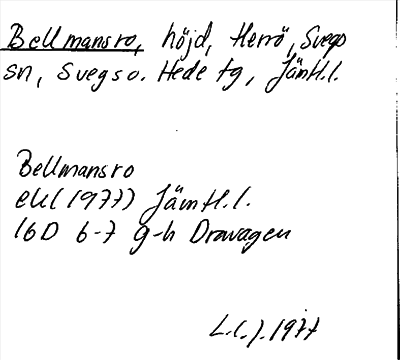 Bellmansro, höjd, Herrö, Svegs
sn, Svegs o. Hede tg, Jämtl.l.
Bellmansro
ekl (1977) Jämtl.l.
16D 6-7 g-h Dravagen
L.L.J. 1977